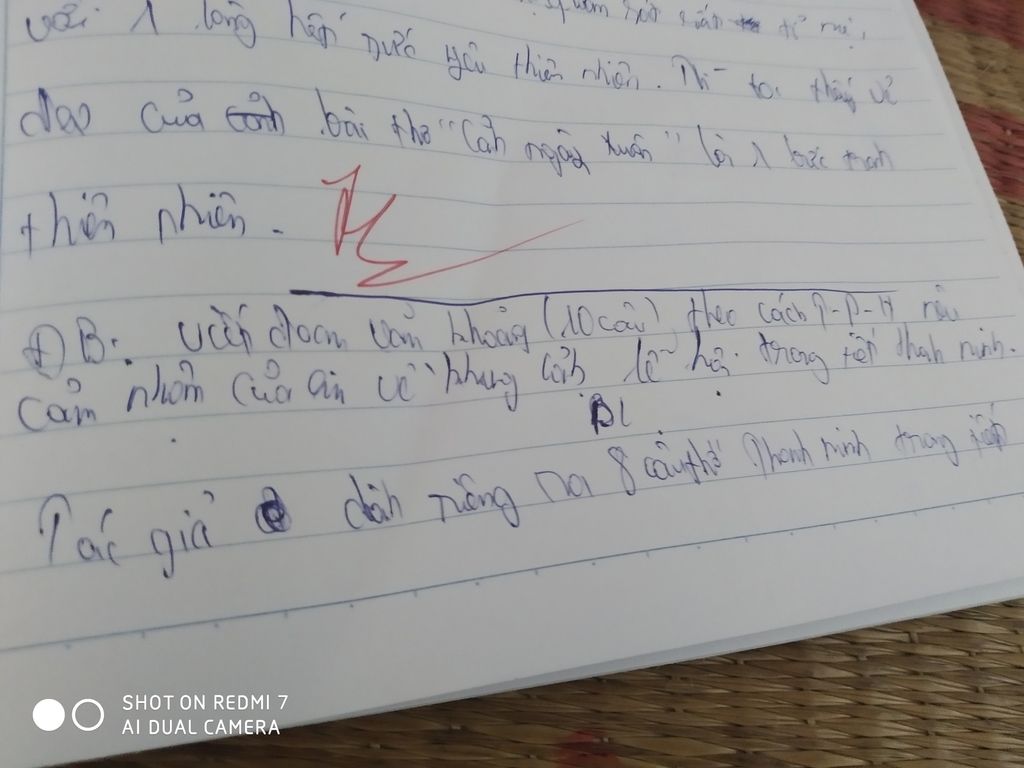 với 1 lòng
nước yêu thiên nhiên. Thì tôi thấy vẻ
đẹp của bài thơ "Cảnh ngày xuân" là 1 bức tranh
thiên nhiên.
ĐB: viết đoạn văn khoảng (10 câu) theo cách T-P-H nêu
cảm nhận của em về khung cảnh lễ hội trong tiết thanh minh.
BL
Tác giả dành riêng ra 8 câu thơ Thanh minh trong tiết
SHOT ON REDMI 7
AI DUAL CAMERA